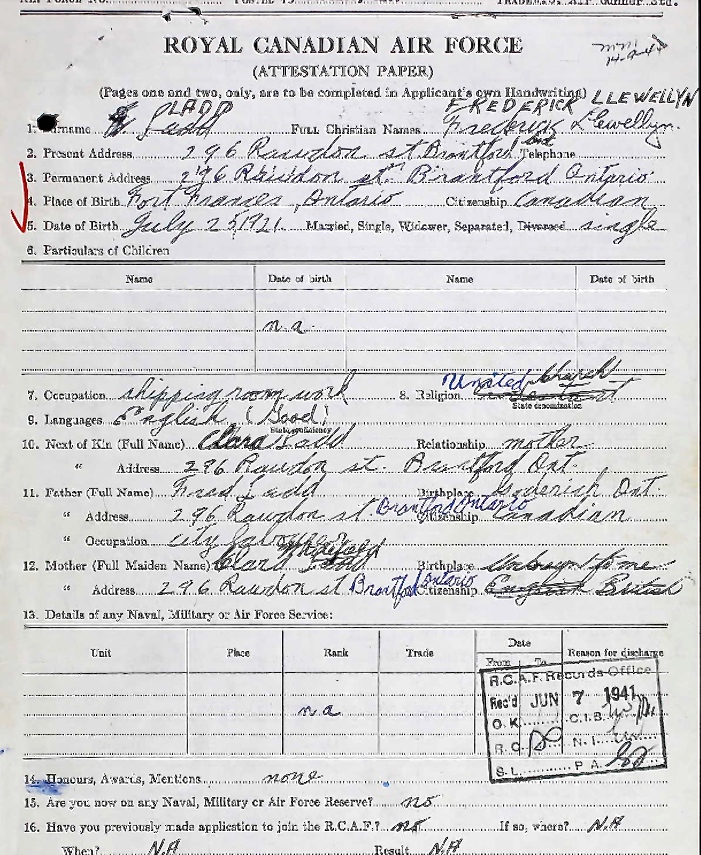 ROYAL CANADIAN AIR FORCE
(ATTESTATION PAPER)
(Pages one and two, only, are to be completed in Applicant's own Handwriting)
LADD FREDERICK LLEWELLYN
1. Surname Ladd FULL Christian Names Frederick Llewellyn.
2. Present Address 296 Rawdon st Brantford Ont Telephone
3. Permanent Address 296 Rawdon st. Brantford Ontario
4. Place of Birth Fort Frances, Ontario Citizenship Canadian
5. Date of Birth July 25/1921. Married, Single, Widower, Separated, Divorced single
6. Particulars of Children
Name Date of birth Name Date of birth
n.a.
7. Occupation shipping room work 8. Religion United Church
State denomination
9. Languages English (Good)
State proficiency
10. Next of Kin (Full Name) Clara Ladd Relationship mother
" Address 296 Rawdon st. Brantford Ont.
11. Father (Full Name) Fred Ladd Birthplace Goderich Ont.
" Address 296 Rawdon st Brantford Ontario Citizenship Canadian
" Occupation city labourer
12. Mother (Full Maiden Name) Clara Birthplace Unknown to me
" Address 296 Rawdon st Brantford Ontario Citizenship English British
13. Details of any Naval, Military or Air Force Service:
Unit Place Rank Trade Date Reason for discharge
From To
n a
R.C.A.F. Records Office
Rec'd JUN 7 1941
O.K. C.I.B.
R.O. N.I.
S.L. P.A.
14. Honours, Awards, Mentions none
15. Are you now on any Naval, Military or Air Force Reserve? no
16. Have you previously made application to join the R.C.A.F.? no If so, where? N.A
When? N.A Result N.A